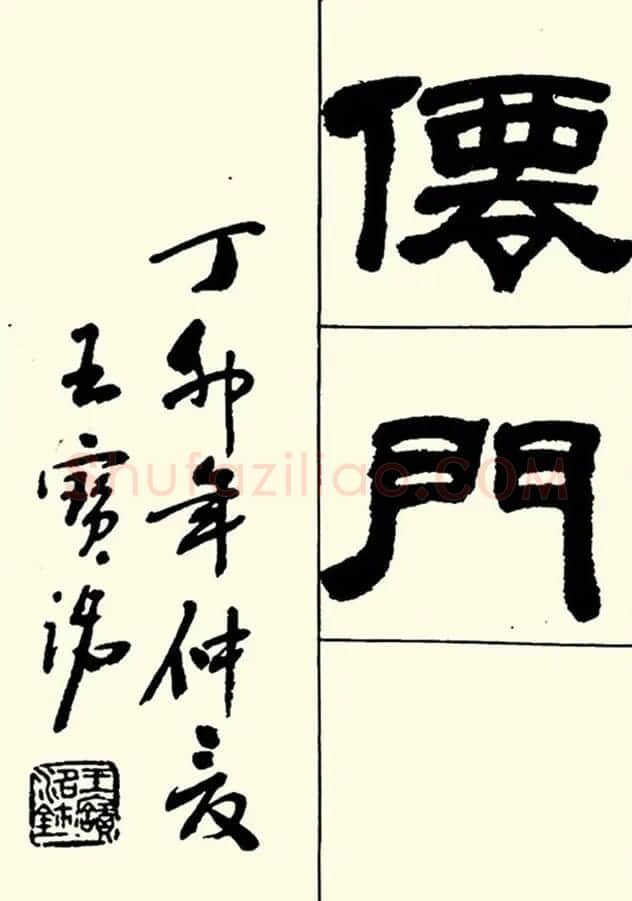 僊門
丁卯年仲夏
王寶洺
王寶洺
Shufaziliao.COM